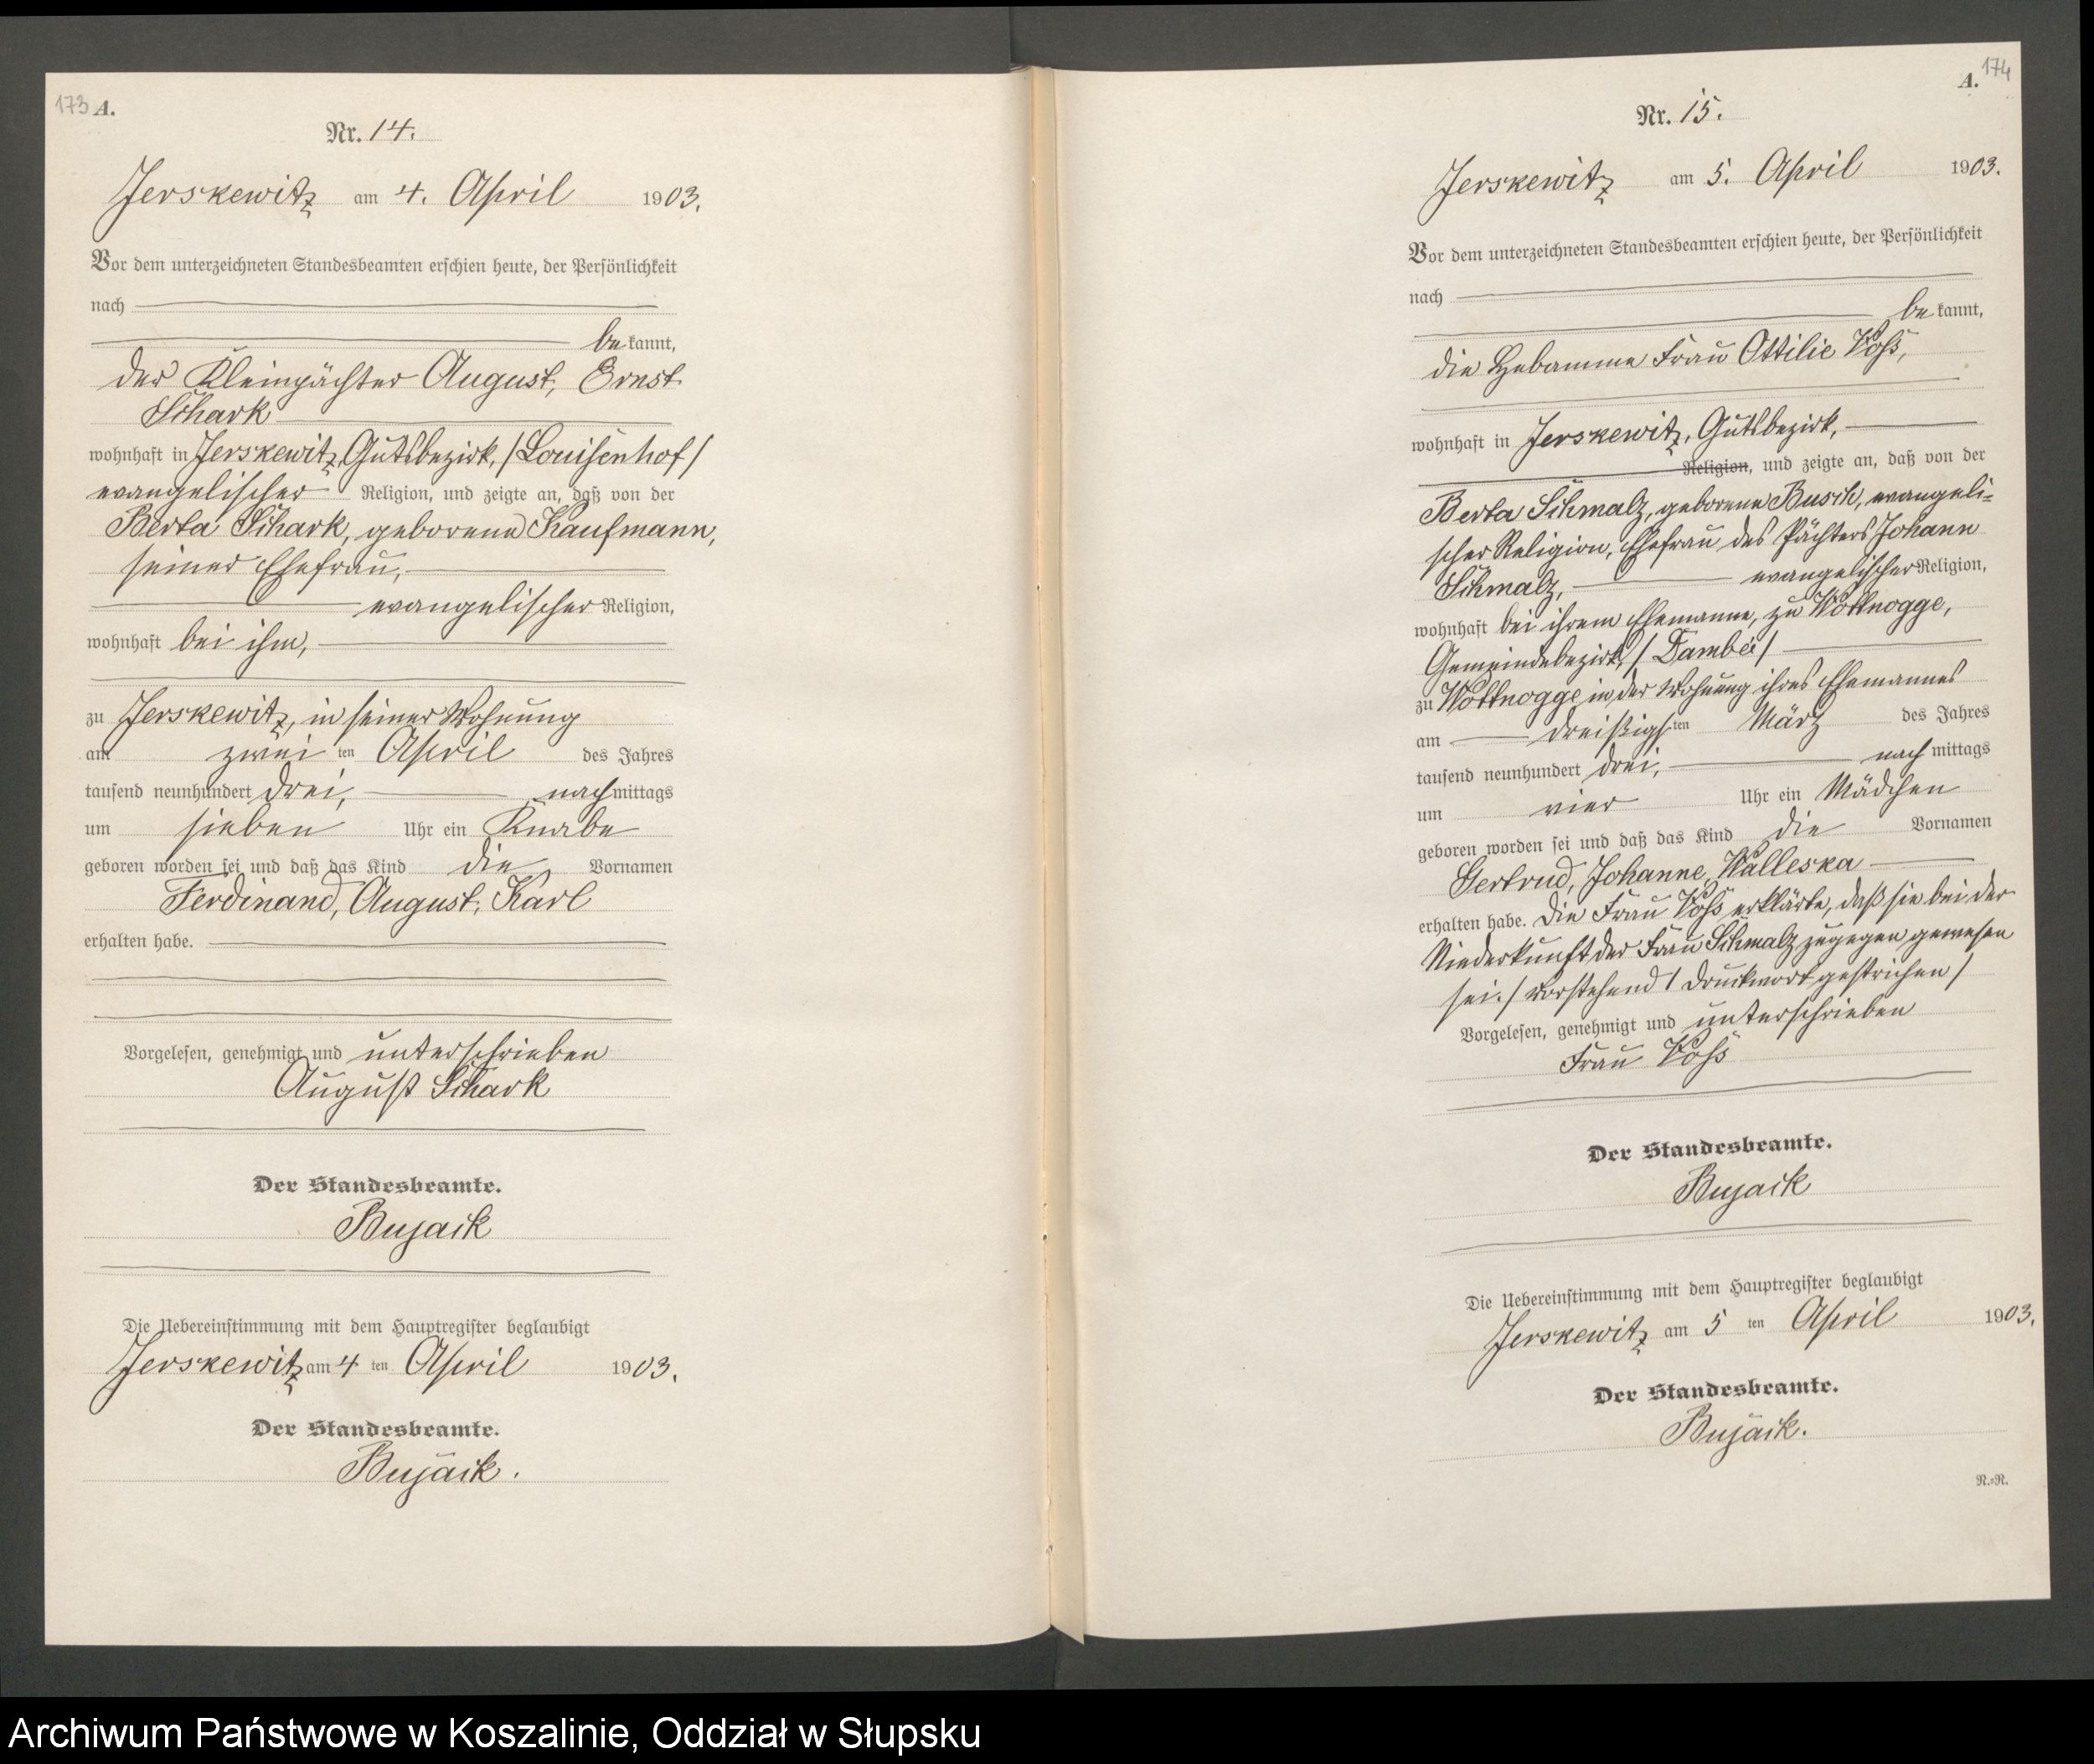 173 A.
Nr. 14.
Jerskewitz am 4. April 1903.
Vor dem unterzeichneten Standesbeamten erschien heute, der Persönlichkeit
nach
be kannt,
der Kleinpächter August, Ernst
Schark
wohnhaft in Jerskewitz, Gutsbezirk, /Louisenhof/
evangelischer Religion, und zeigte an, daß von der
Berta Schark, geborene Kaufmann,
seiner Ehefrau,
evangelischer Religion,
wohnhaft bei ihm,
zu Jerskewitz, in seiner Wohnung
am zwei ten April des Jahres
tausend neunhundert drei, nach mittags
um sieben Uhr ein Knabe
geboren worden sei und daß das Kind die Vornamen
Ferdinand, August, Karl
erhalten habe.
Vorgelesen, genehmigt und unterschrieben
August Schark
Der Standesbeamte.
Bujack
Die Uebereinstimmung mit dem Hauptregister beglaubigt
Jerskewitz am 4 ten April 1903.
Der Standesbeamte.
Bujack.
A. 174
Nr. 15.
Jerskewitz am 5. April 1903.
Vor dem unterzeichneten Standesbeamten erschien heute, der Persönlichkeit
nach
be kannt,
die Hebamme Frau Ottilie Voß,
wohnhaft in Jerskewitz, Gutsbezirk,
Religion, und zeigte an, daß von der
Berta Schmalz, geborene Busch, evangeli-
scher Religion, Ehefrau des Pächters Johann
Schmalz, evangelischer Religion,
wohnhaft bei ihrem Ehemanne, zu Wottnogge,
Gemeindebezirk, /Dambee/
zu Wottnogge in der Wohnung ihres Ehemannes
am dreißigs ten März des Jahres
tausend neunhundert drei, nach mittags
um vier Uhr ein Mädchen
geboren worden sei und daß das Kind die Vornamen
Gertrud, Johanne, Walleska
erhalten habe. Die Frau Voß erklärte, daß sie bei der
Niederkunft der Frau Schmalz zugegen gewesen
sei. /Vorstehend 1 Druckwort gestrichen/
Vorgelesen, genehmigt und unterschrieben
Frau Voß
Der Standesbeamte.
Bujack
Die Uebereinstimmung mit dem Hauptregister beglaubigt
Jerskewitz am 5 ten April 1903.
Der Standesbeamte.
Bujack.
N.=N.
Archiwum Państwowe w Koszalinie, Oddział w Słupsku